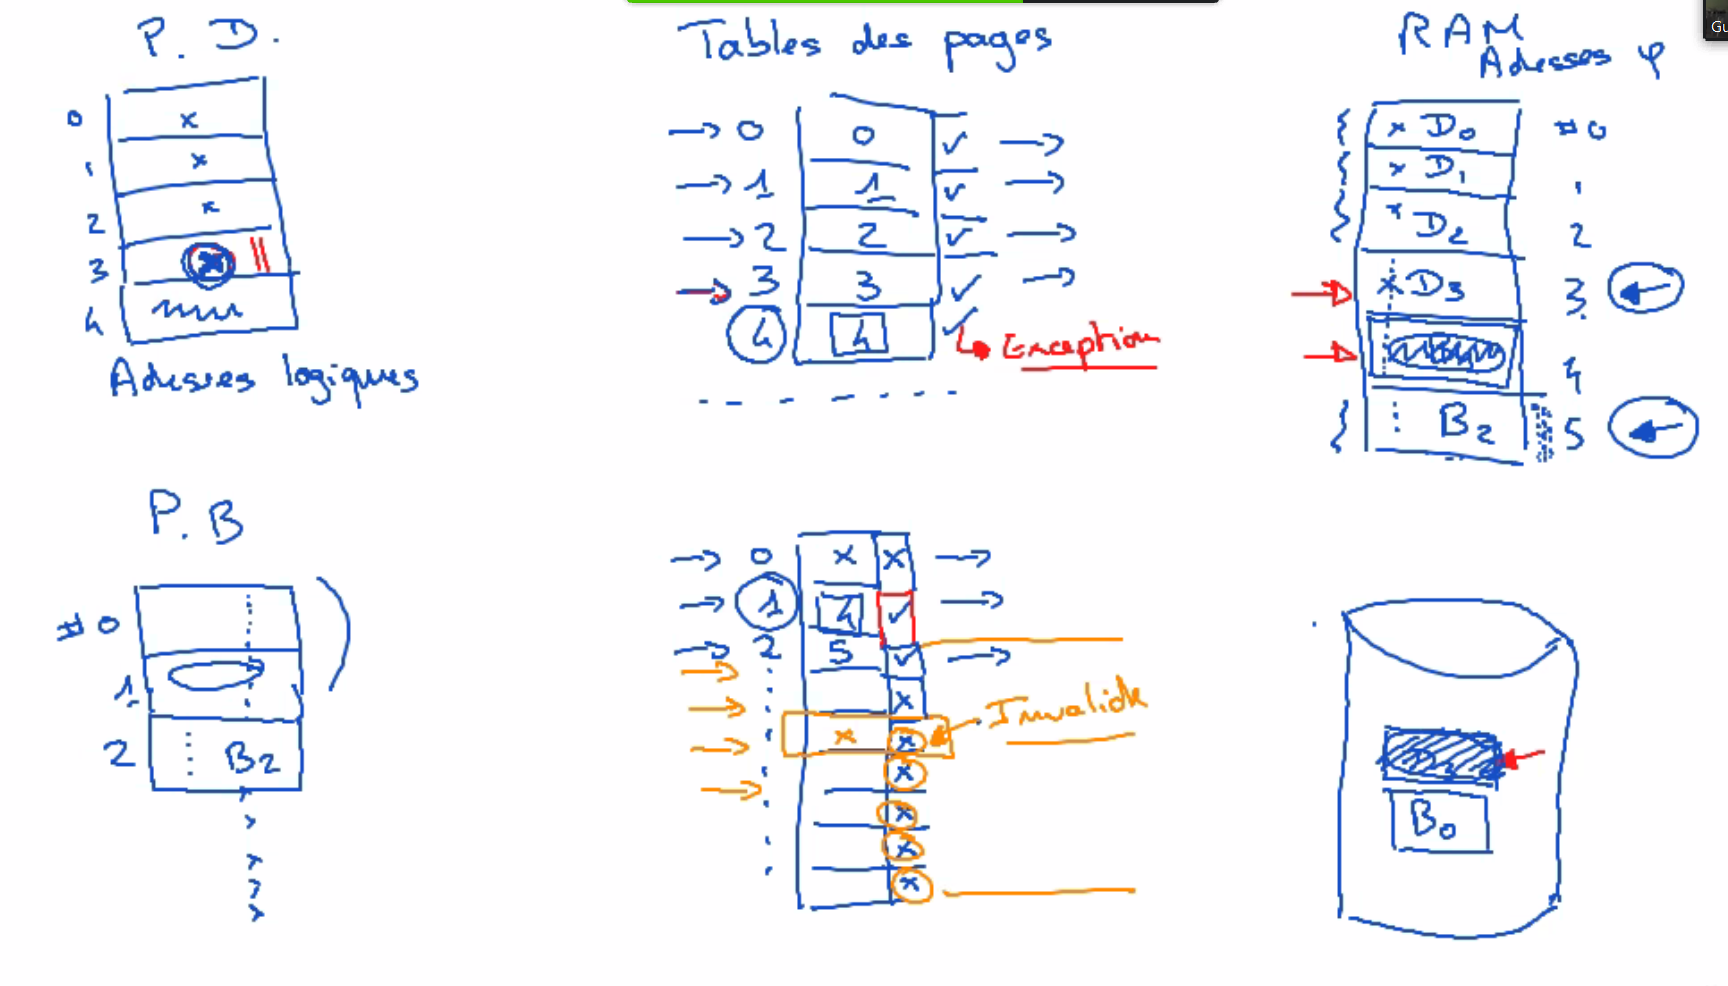 P. D.
0 x
1 x
2 x
3 x
4
Adresses logiques
Tables des pages
0 0 ✓
1 1 ✓
2 2 ✓
3 3 ✓
4 4 ✓
Exception
RAM
Adesses φ
x D0 #0
x D1 1
x D2 2
x D3 3
4
B2 5
P. B
#0
1
2 B2
0 x x
1 4 ✓
2 5 ✓
x
x x
x
x
x
x
Invalide
B0
Gu